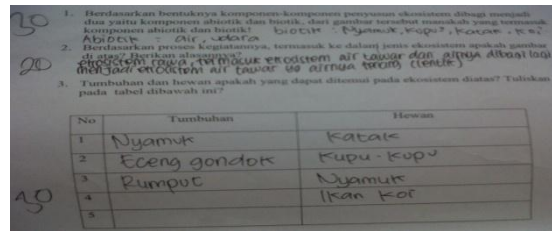 30
1. Berdasarkan bentuknya komponen-komponen penyusun ekosistem dibagi menjadi
dua yaitu komponen abiotik dan biotik, dari gambar tersebut manakah yang termasuk
komponen abiotik dan biotik! biotik : Nyamuk, kupu², katak, koi
Abiotik : air, udara
2. Berdasarkan proses kegiatannya, termasuk ke dalam jenis ekosistem apakah gambar
di atas? Berikan alasannya?
20
ekosistem rawa, termasuk ekosistem air tawar dan airnya dibagi lagi
menjadi ekosistem air tawar yg airnya tenang (lentik)
3. Tumbuhan dan hewan apakah yang dapat ditemui pada ekosistem diatas? Tuliskan
pada tabel dibawah ini?
No Tumbuhan Hewan
1 Nyamuk Katak
2 Eceng gondok Kupu-kupu
3 Rumput Nyamuk
4 Ikan Koi
5